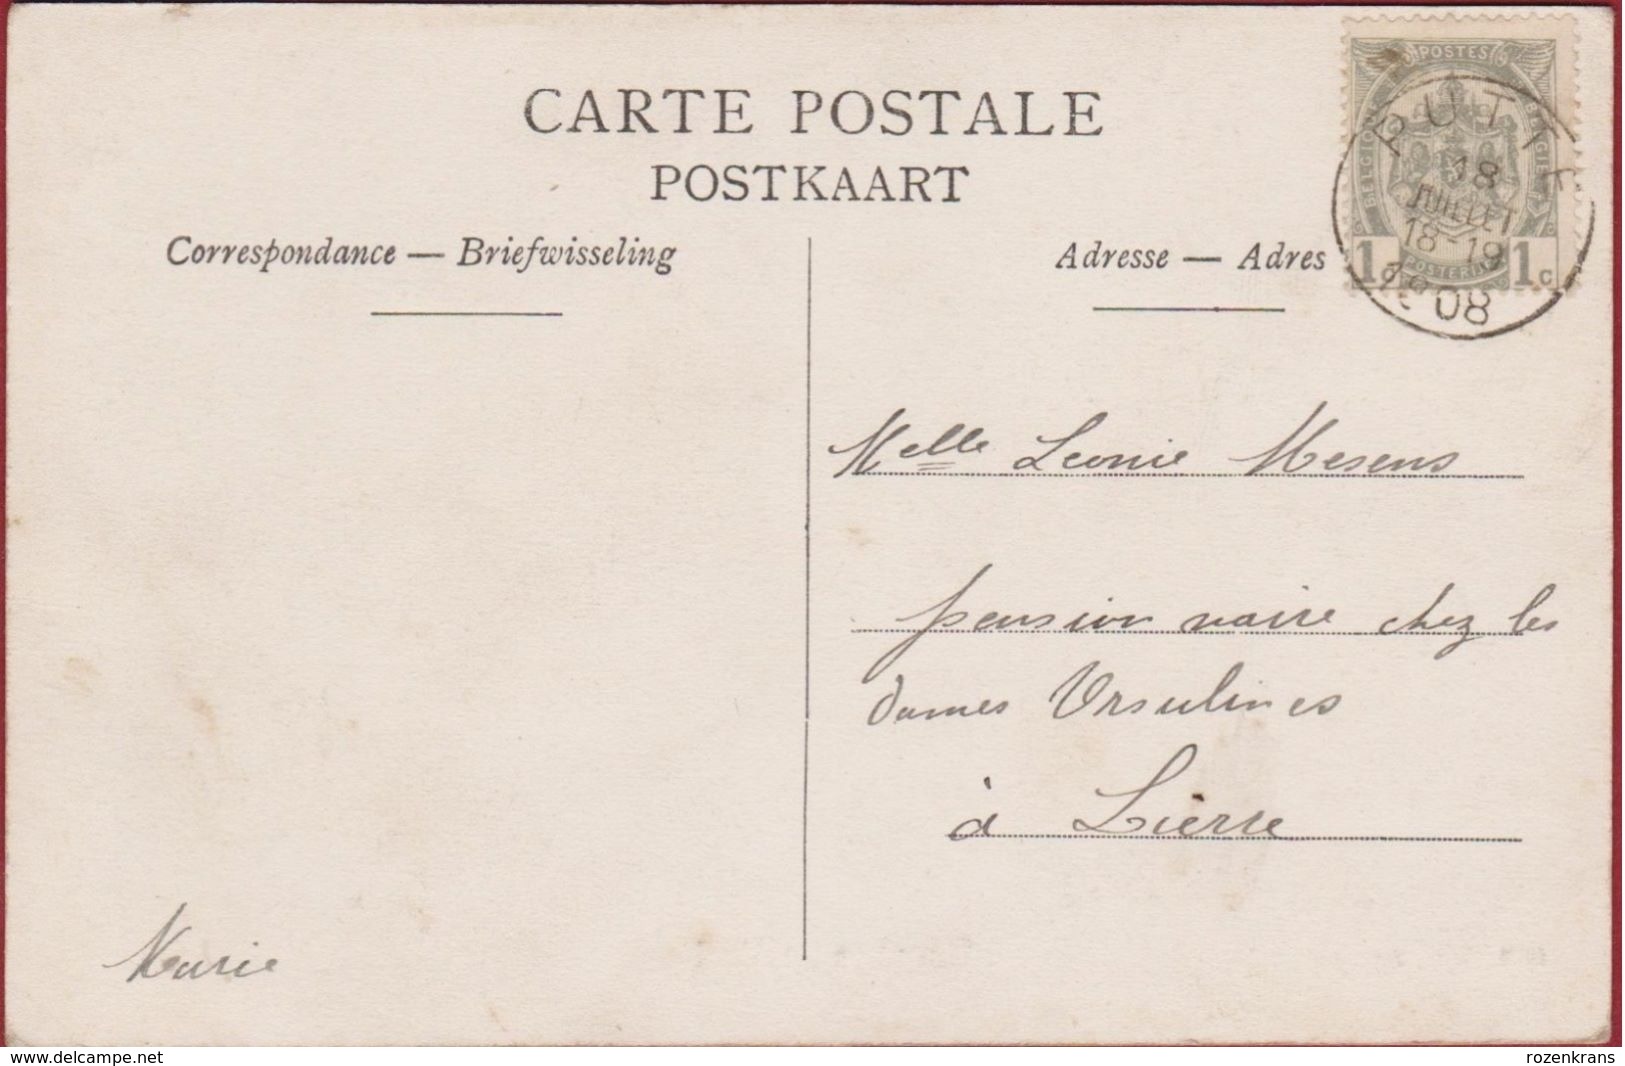 CARTE POSTALE
POSTKAART
Correspondance — Briefwisseling
Adresse — Adres
POSTES
BELGIQUE
BELGIË
POSTERIJEN
1c 1c
PUTTE
18
JUILLET
18-19
1908
Melle Leonie Mesens
pensionnaire chez les
dames Ursulines
à Lierre
Marie
www.delcampe.net
rozenkrans